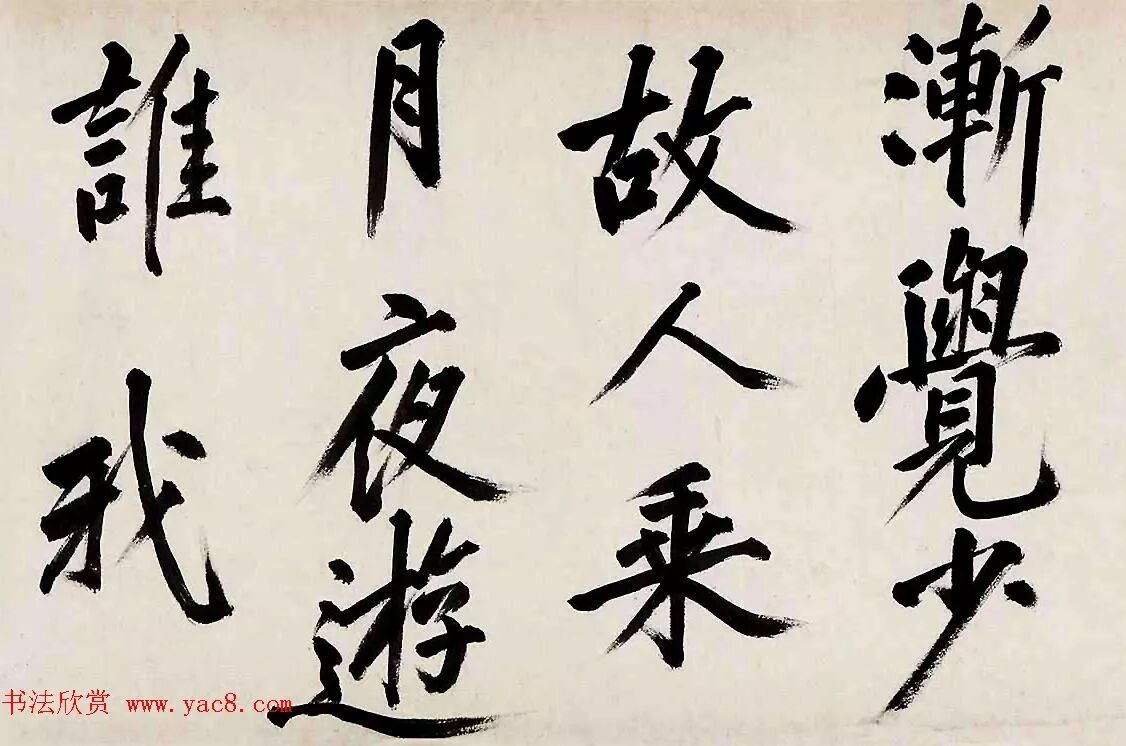 漸覺少
故人乘
月夜遊
誰我
书法欣赏 www.yac8.com